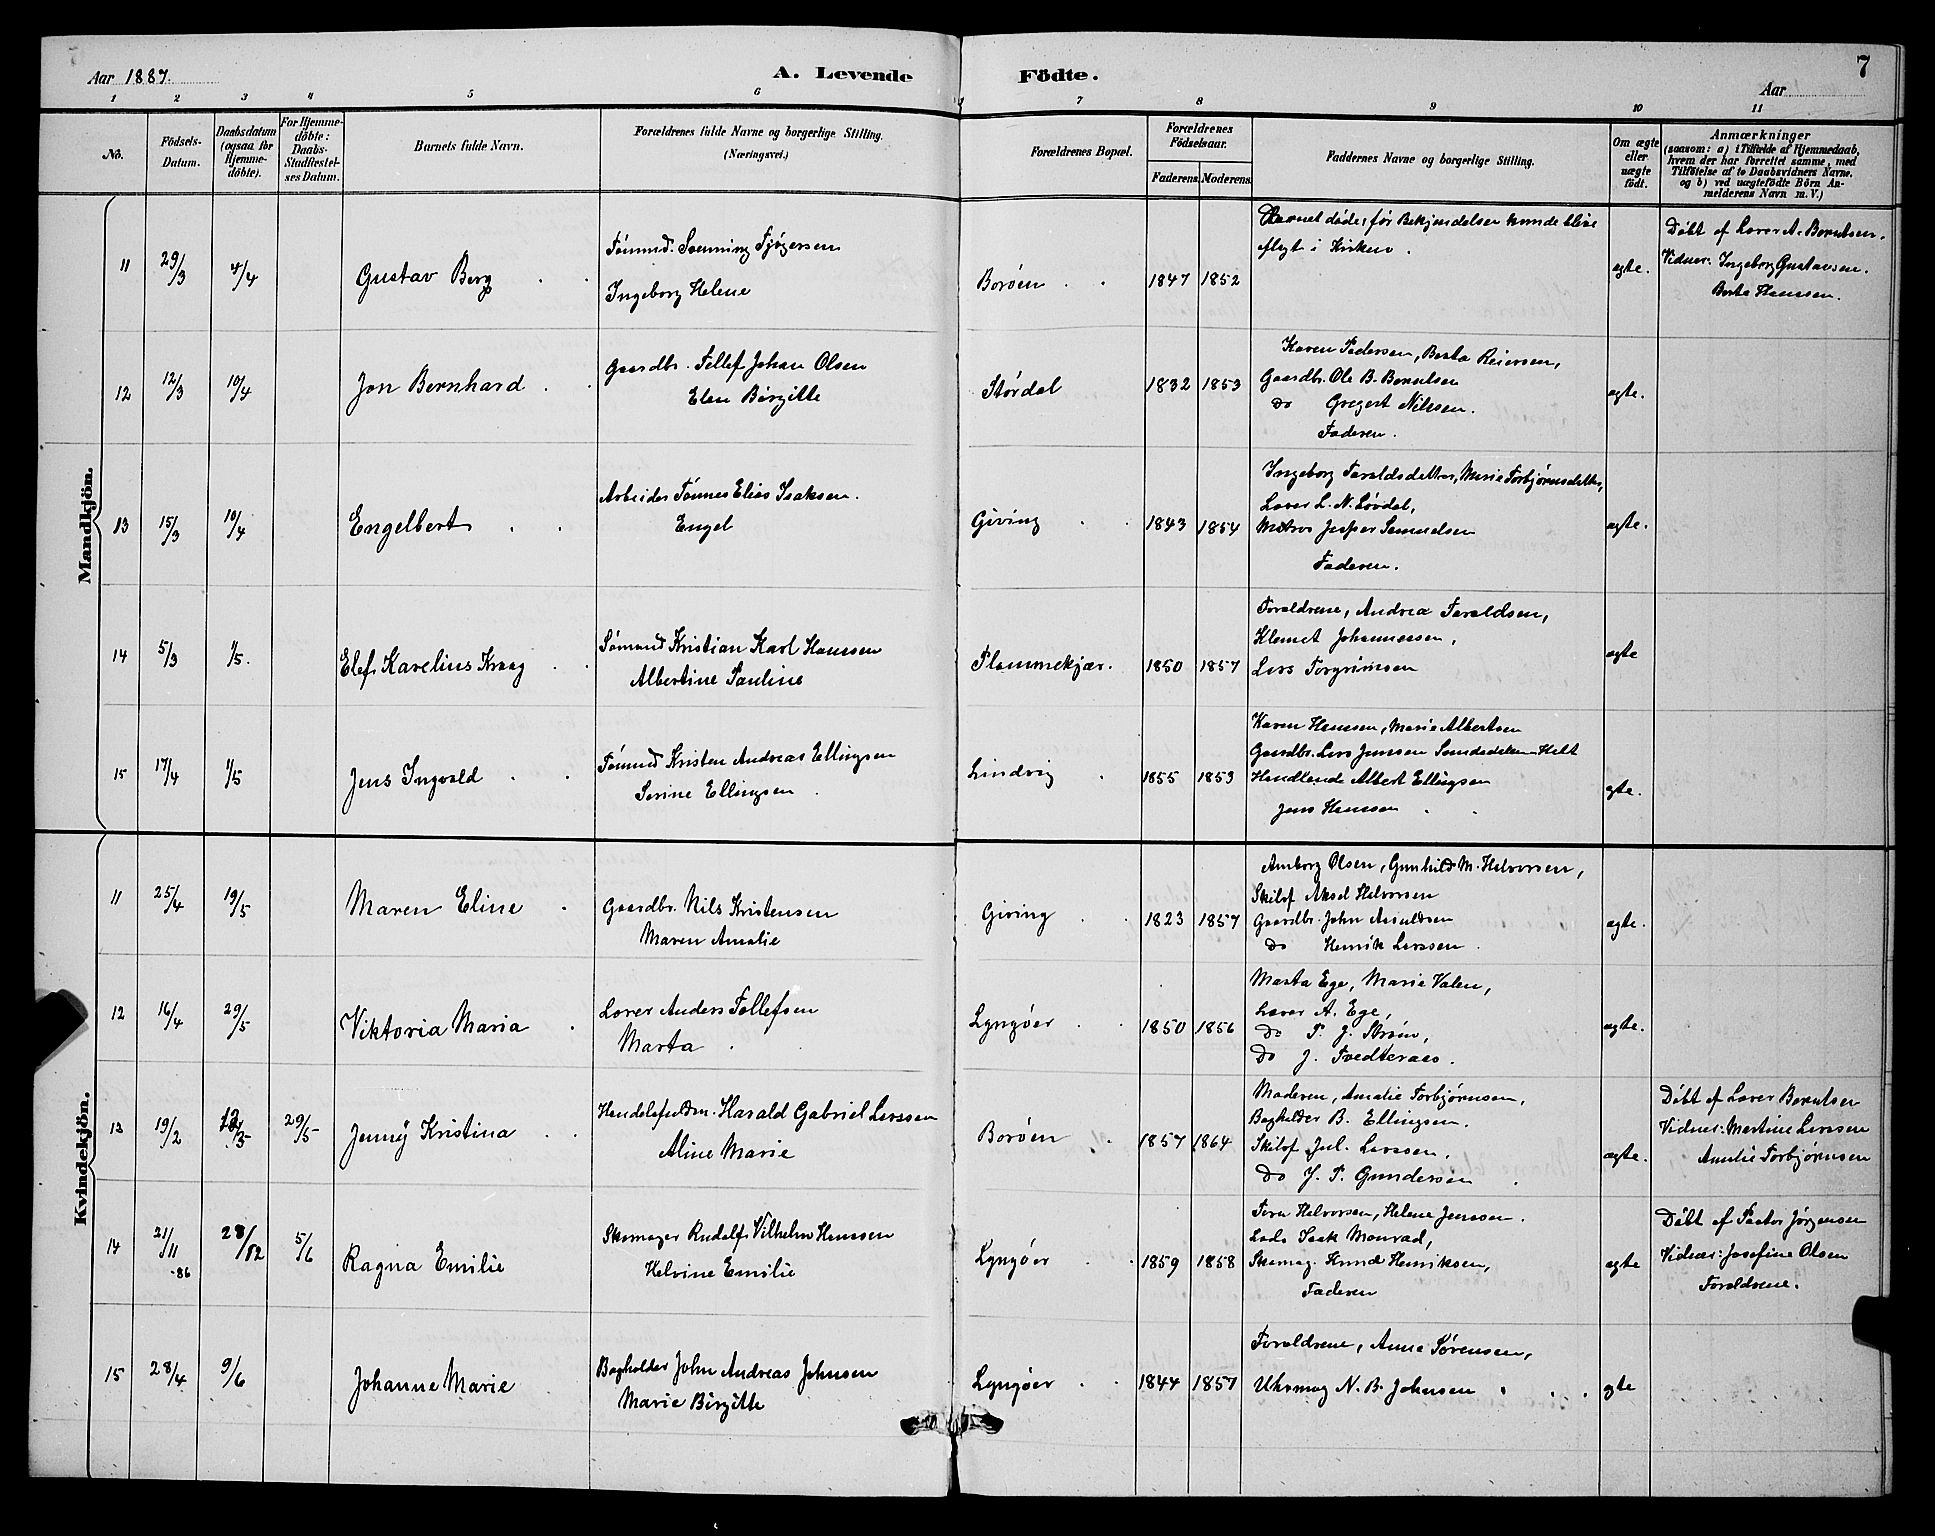 Aar 1887.
A. Levende
Födte.
7
Aar
1 2 3 4 5 6 7 8 9 10 11
No.
Födsels-
Datum.
Daabsdatum
(ogsaa for
Hjemme-
döbte).
For Hjemme-
döbte:
Daabs-
Stadfæstel-
ses Datum.
Barnets fulde Navn.
Forældrenes fulde Navne og borgerlige Stilling.
(Næringsvei.)
Forældrenes Bopæl.
Forældrenes
Födselsaar.
Faderens Moderens
Faddernes Navne og borgerlige Stilling.
Om ægte
eller
uægte
födt.
Anmærkninger
(saasom: a) i Tilfælde af Hjemmedaab,
hvem der har forrettet samme, med
Tilföielse af to Daabsvidners Navne,
og b) ved uægtefödte Börn An-
melderens Navn m. V.)
Mandkjön.
11 29/3 4/4
Gustav Berg
Tjøgersen
Ingeborg Helene
Borøen
1847 1852
Barnet døde, før Bekjendelsen kunde blive
aflagt i Kirken.
ægte.
Døbt af Lærer A. Berntsen.
Vidner: Ingeborg Gustavsen.
Berte Hanssen.
12 12/3 10/4
Jon Bernhard
Gaardbr. Tellef Johan Olsen
Elen Birgitte
Størdal
1832 1853
Karen Pedersen, Berta Reiersen,
Gaardbr. Ole B. Berntsen
Do Gregert Nilssen.
Faderen.
ægte.
13 15/3 10/4
Engelbert
Arbeider Tønnes Elias Isaksen.
Engel
Giving
1843 1854
Ingeborg Taraldsdatter, Marie Torbjørnsdatter,
Lærer L. N. Løvdal,
Matros Jesper Samuelsen
Faderen.
ægte.
14 5/3 1/5.
Elef Karelius Kraag
Sømand Kristian Karl Hanssen
Albertine Pauline
Plommekjær.
1850 1857
Forældrene, Andrea Taraldsen,
Klemet Johannessen,
Lars Torgrimsen
ægte
15 17/4 1/5
Jens Ingvald
Tømmd. Kristen Andreas Ellingsen
Serine Ellingsen
Lindvig
1855 1853
Karen Hanssen, Marie Albertsen
Gaardbr. Lars Jenssen
Handlende Albert Ellingsen
Jens Hanssen
ægte.
Kvindekjön.
11 25/4 19/5
Maren Eline
Gaardbr. Nils Kristensen
Maren Amalie
Giving
1823 1857
Amborg Olsen, Gunhild M. Halvorsen,
Skibsf. Aksel Halvorsen
Gaardbr. John Arnuldsen
Do Henrik Larssen
ægte.
12 16/4 29/5
Viktoria Maria
Lærer Anders Tellefsen
Marta
Lyngøer
1850 1856
Marta Ege, Marie Valen,
Lærer A. Ege,
Do P. J. Strøm,
Do J. Tvedteraas.
ægte.
13 19/2 12/3 29/5
Jenny Kristina
Handelsfuldm. Harald Gabriel Larssen
Aline Marie
Borøen
1857 1864
Moderen, Amalie Torbjørnsen,
Bogholder B. Ellingsen.
Skibsf. Jul. Larssen.
Do J. P. Gundersen
ægte.
Døbt af Lærer Berntsen
Vidner: Martine Larssen
Amalie Torbjørnsen
14 21/11 -86 28/12 5/6
Ragna Emilie
Skomager Rudolf Vilhelm Hanssen
Helvine Emilie
Lyngøer
1859 1858
Tora Halvorsen, Helene Jenssen.
Lods Isak Monrad,
Skomag. Knud Henriksen,
Faderen
ægte
Døbt af Pastor Jørgensen
Vidner: Josefine Olsen
Forældrene.
15 28/4 9/6
Johanne Marie
Bogholder John Andreas Johnsen
Marie Birgitte
Lyngøer
1844 1857
Forældrene, Anna Sørensen,
Uhrmag. N. B. Johnsen
ægte